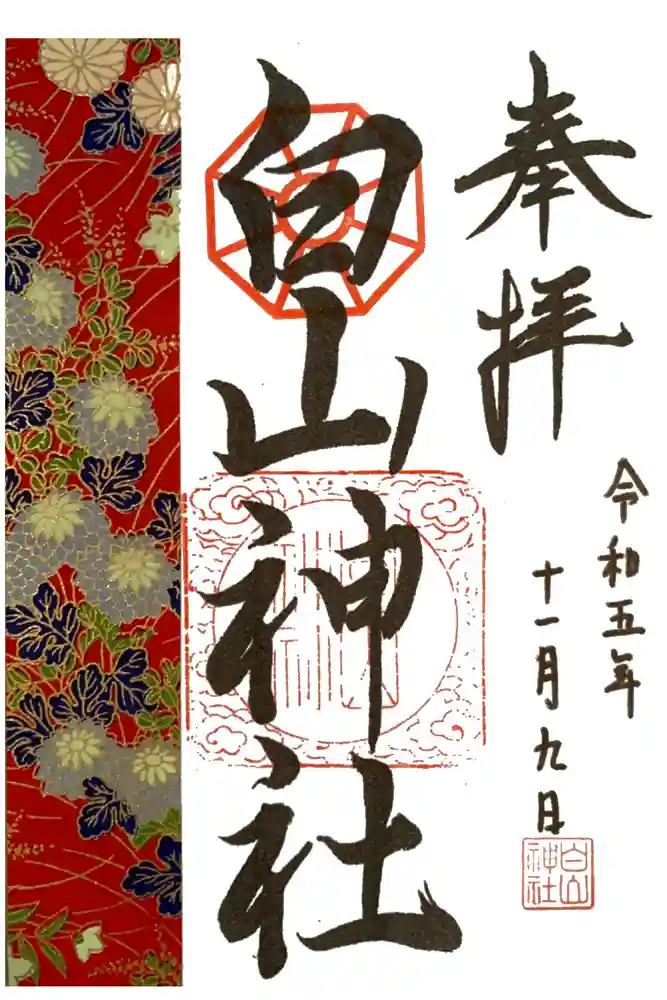 奉拝
令和五年
十一月九日
白山神社
白山神社